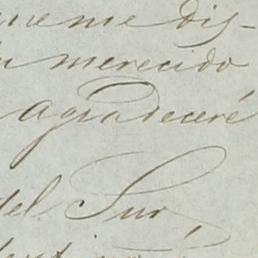 que me dis-
merecido
agradeceré
del Sur,